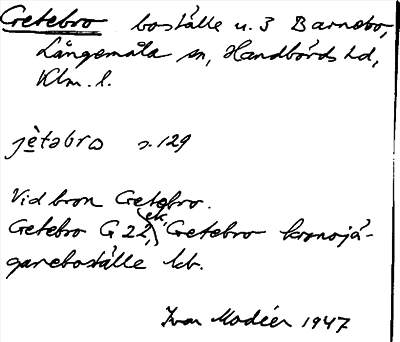 Getebro boställe u. 3 Barnebo,
Långemåla sn, Handbörds hd,
Klm. l.
jètəbro s. 129
Vid bron Getebro.
Getebro G 22, ek, Getebro kronojä-
gareboställe kb.
Ivar Modéer 1947